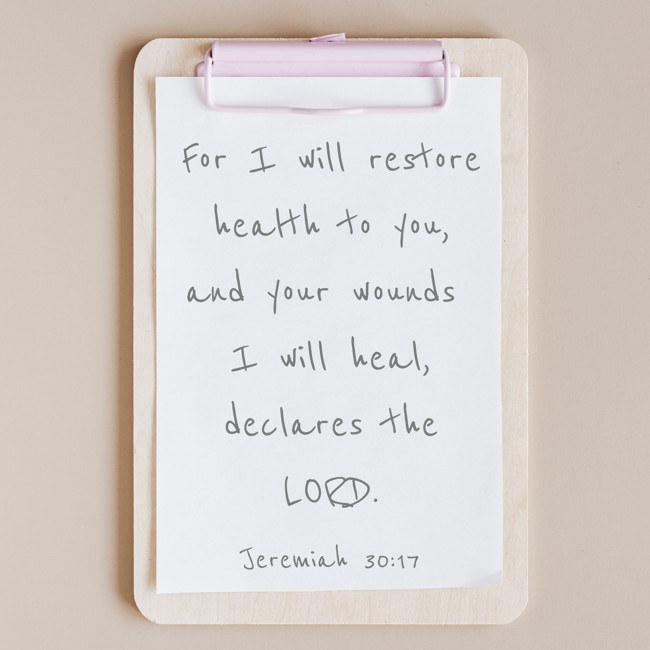 For I will restore
health to you,
and your wounds
I will heal,
declares the
LORD.
Jeremiah 30:17